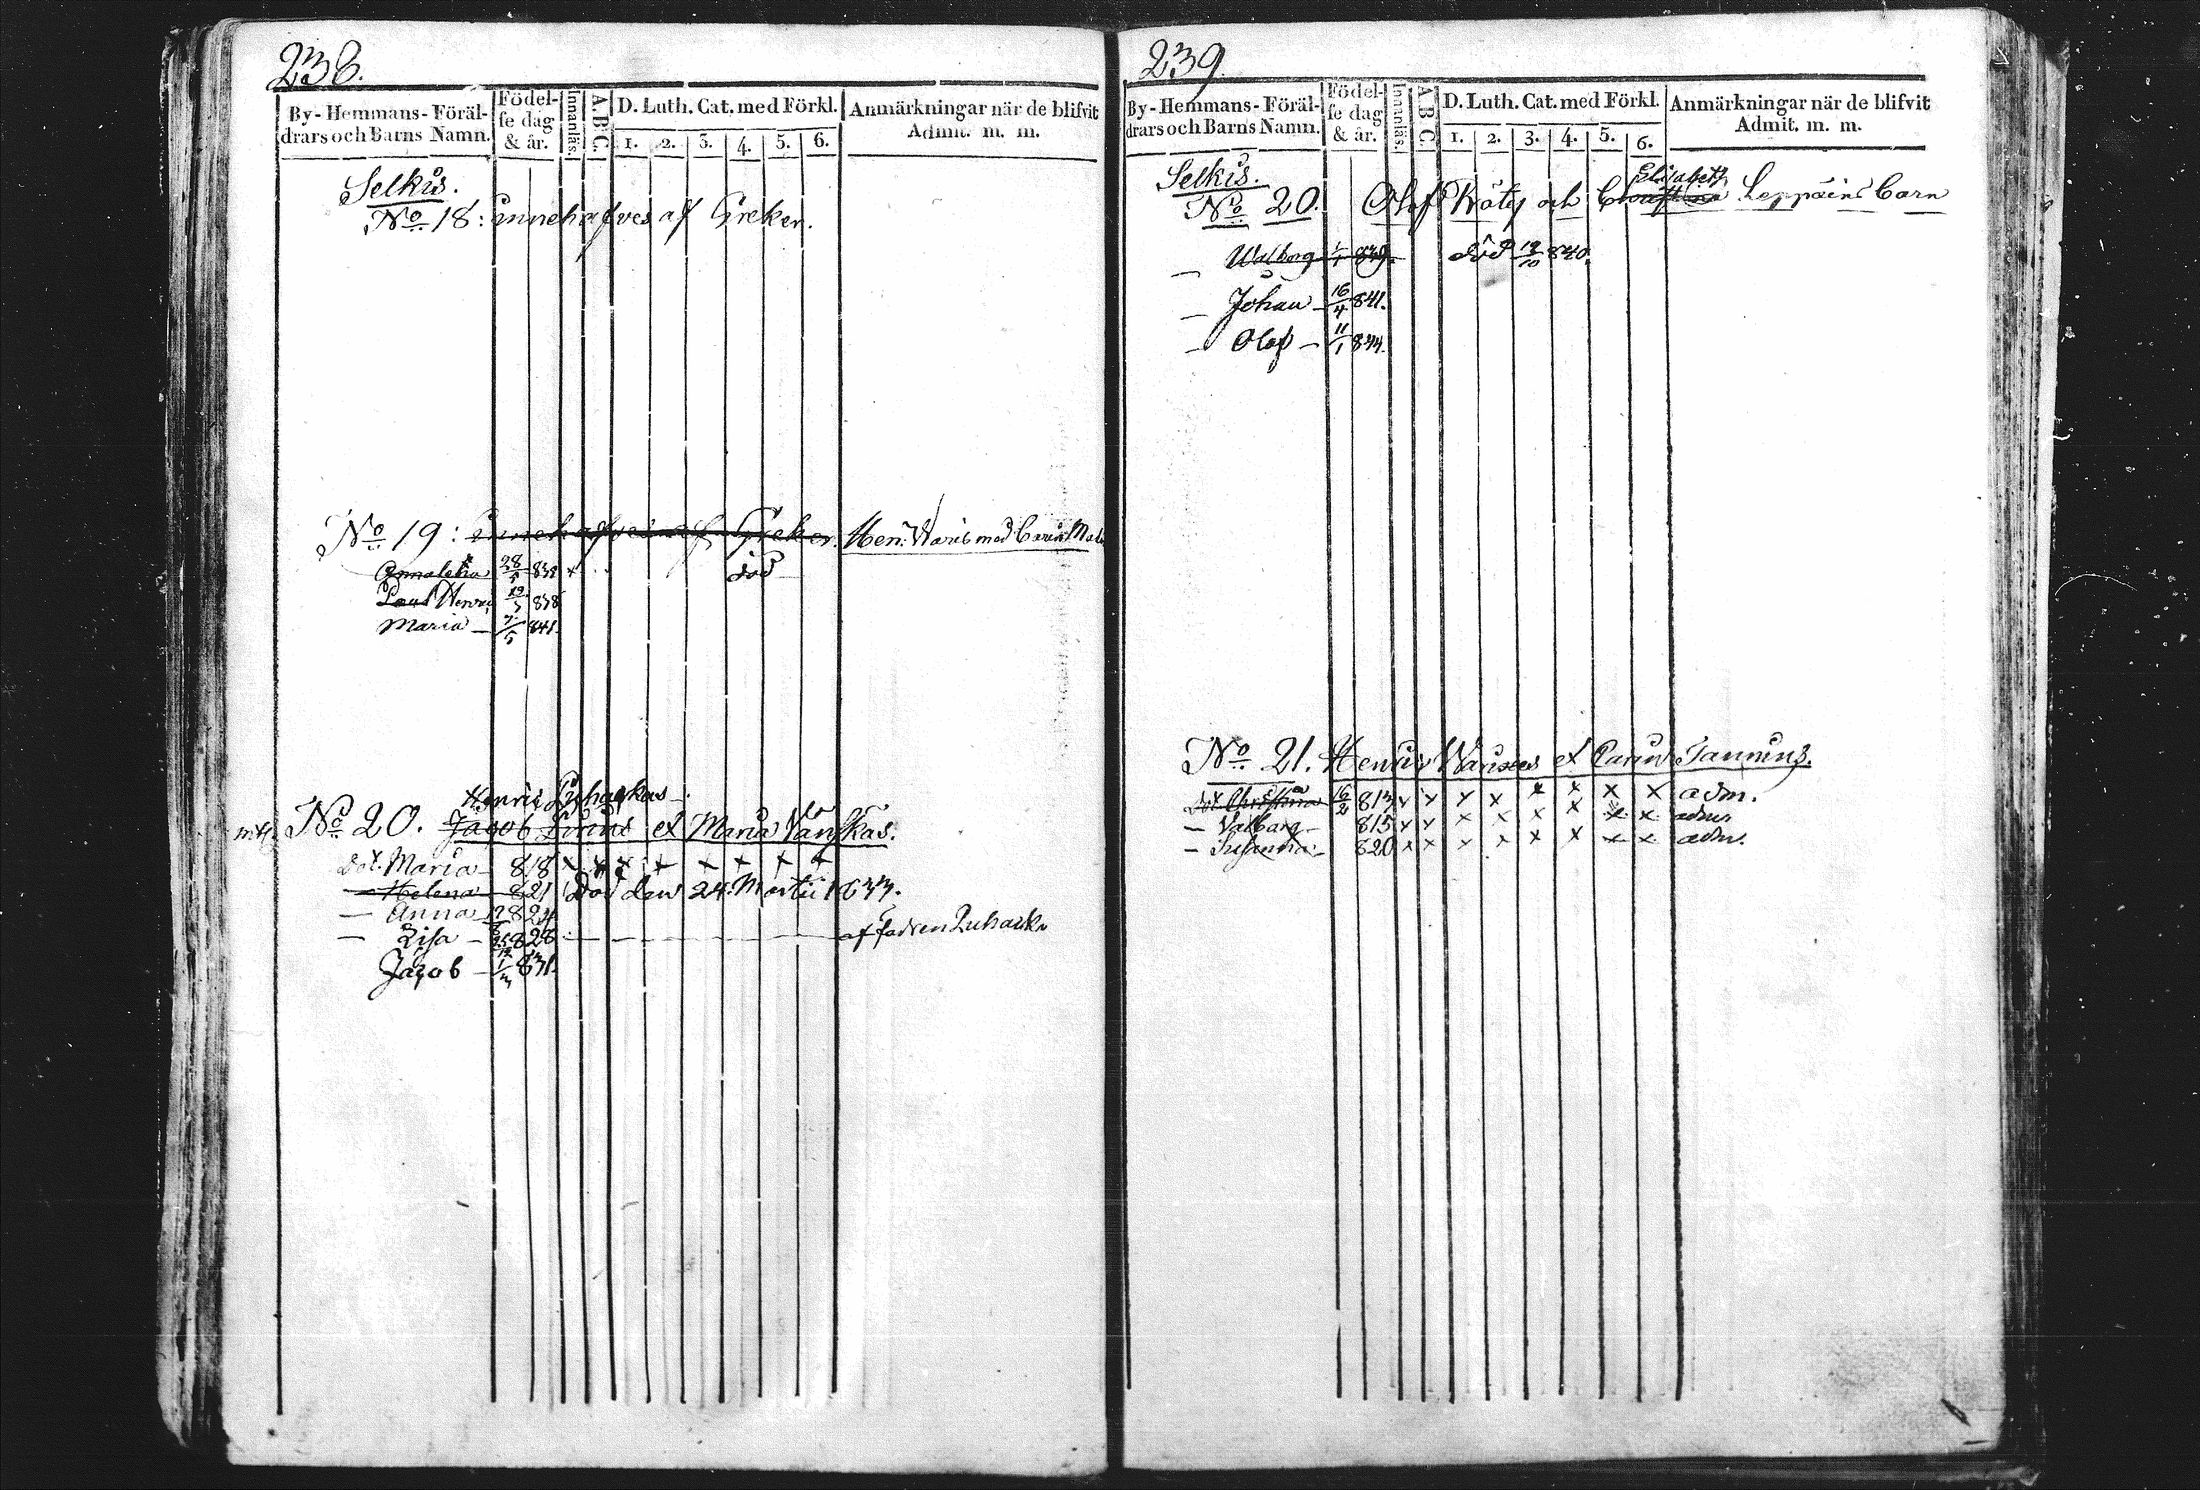 238.
By-Hemmans-Föräl-
drars och Barns Namn.
Födel-
se dag
& år.
Innanläs.
A.B.C.
D. Luth. Cat. med Förkl.
1. 2. 3. 4. 5. 6.
Anmärkningar när de blifvit
Admit. m. m.
Selkis.
No 18: innehafves af Greker.
No 19: innehafves af Greker. Hen: Waris med Carin
Annalena 28/5 838 x död
Paul Henric 838
Maria — 7/5 841.
Henric
No 20. Jacob et Maria
Dot. Maria — 818 x x x x x x x x
— Helena — 821 Död den 24 Martii 1833.
— Anna 824
— Lisa — 828 af fadren
Jacob — 831.
239.
By-Hemmans-Föräl-
drars och Barns Namn.
Födel-
se dag
& år.
Innanläs.
A B C
D. Luth. Cat. med Förkl.
1. 2. 3. 4. 5. 6.
Anmärkningar när de blifvit
Admit. m. m.
Selkis.
Elisabeth
No 20. Olof Räty och Christina Leppäins Barn
— Walborg 1/1 839. död 840.
— Johan — 16/4 841.
— Olof — 11/1 844.
No 21. Henric Warises et Carin Tanninz.
Dot Christina 16/2 813 x x x x x x x x adm.
— Valborg — 815 x x x x x x x x adm.
— Susanna — 820 x x x x x x x x adm.